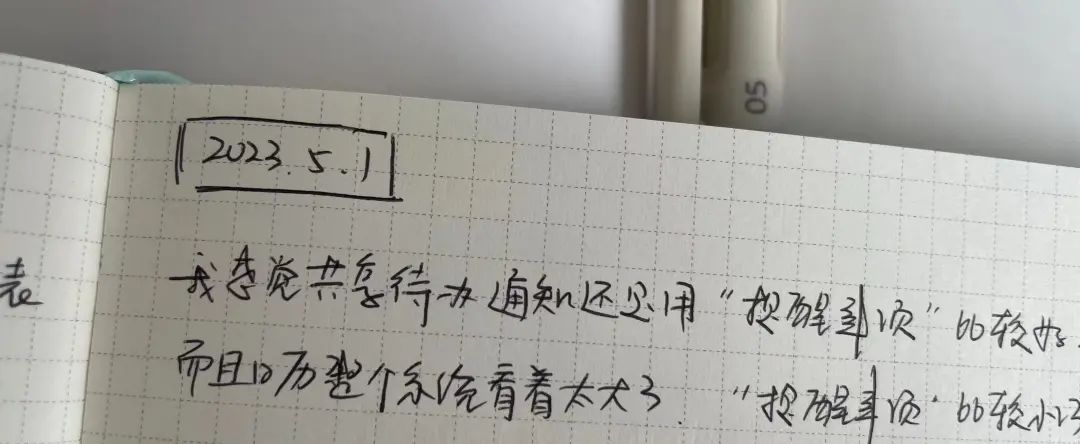 05
2023.5.1
表
我感觉共享待办通知还是用“提醒事项”比较好.
而且日历整个系统看着太大了 “提醒事项”比较小巧